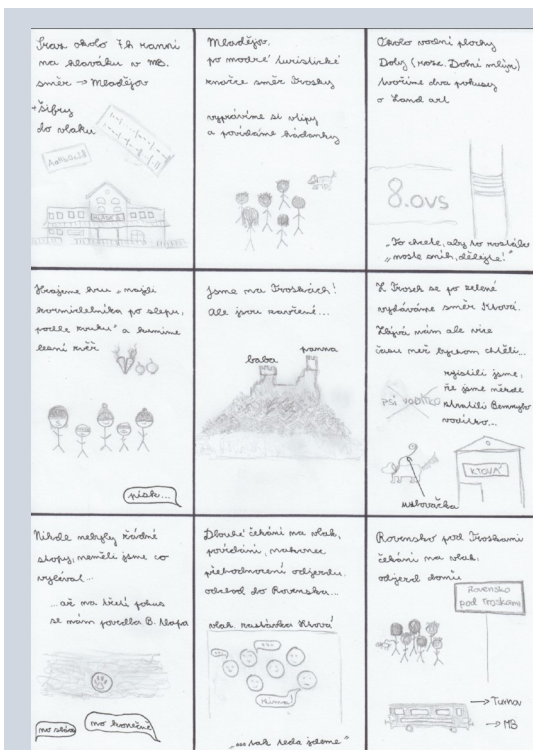 Sraz okolo 7.h ranní
na hlaváku v MB.
směr → Mladějov
+ Šifry
do vlaku
Mladějov.
po modré turistické
značce směr Trosky
vyprávíme si vtipy
a povídáme hádanky
Okolo vodní plochy
Doly (roze. Dolní mlýn)
tvoříme dva pokusy
o Land art
8.ovs
"To chcete, aby to roztálo
noste sníh, dělejte!"
Hrajeme hru "najdi
kormidelníka po slepu,
podle zvuku" a krmíme
lesní zvěř
písk...
Jsme na Troskách!
Ale jsou zavřené...
baba
panna
Z Trosek se po zelené
vydáváme směr Ktová.
Zbývá nám ale více
času než bychom chtěli...
zjistili jsme,
že jsme někde
ztratili
vodítko...
psí vodítko
KTOVÁ
Nikde nebyly žádné
stopy, neměli jsme co
vylévat...
...až na třetí pokus
se nám povedla B. tlapa
no sláva
no konečně
Dlouhé čekání na vlak,
povídání, nakonec
přehodnocení odjezdu.
odchod do Rovenska...
vlak. zastávka Ktová
"...tak teda jdeme"
Rovensko pod Troskami
čekání na vlak.
odjezd domů
Rovensko
pod Troskami
→ Turnov
→ MB